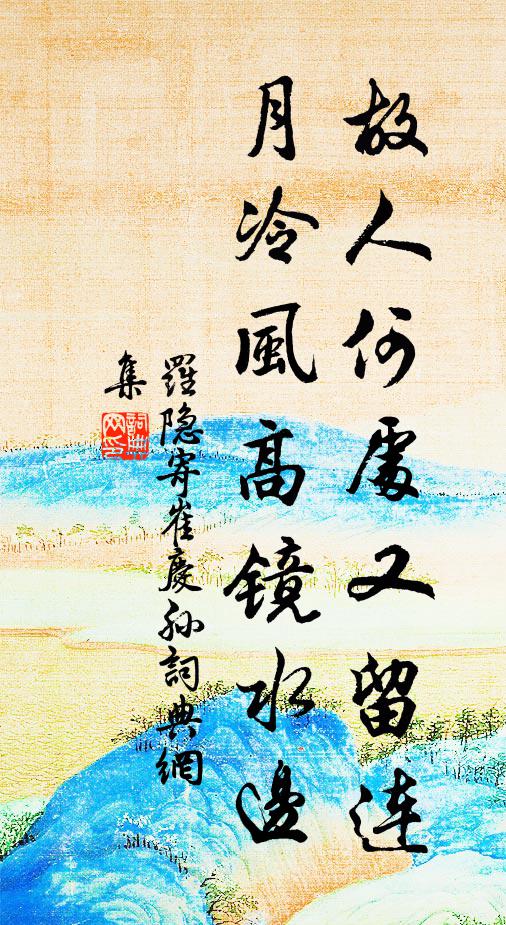 故人何處又留连
月冷風高镜水邊
羅隐寄崔慶孙詞典網
集
詞典網印